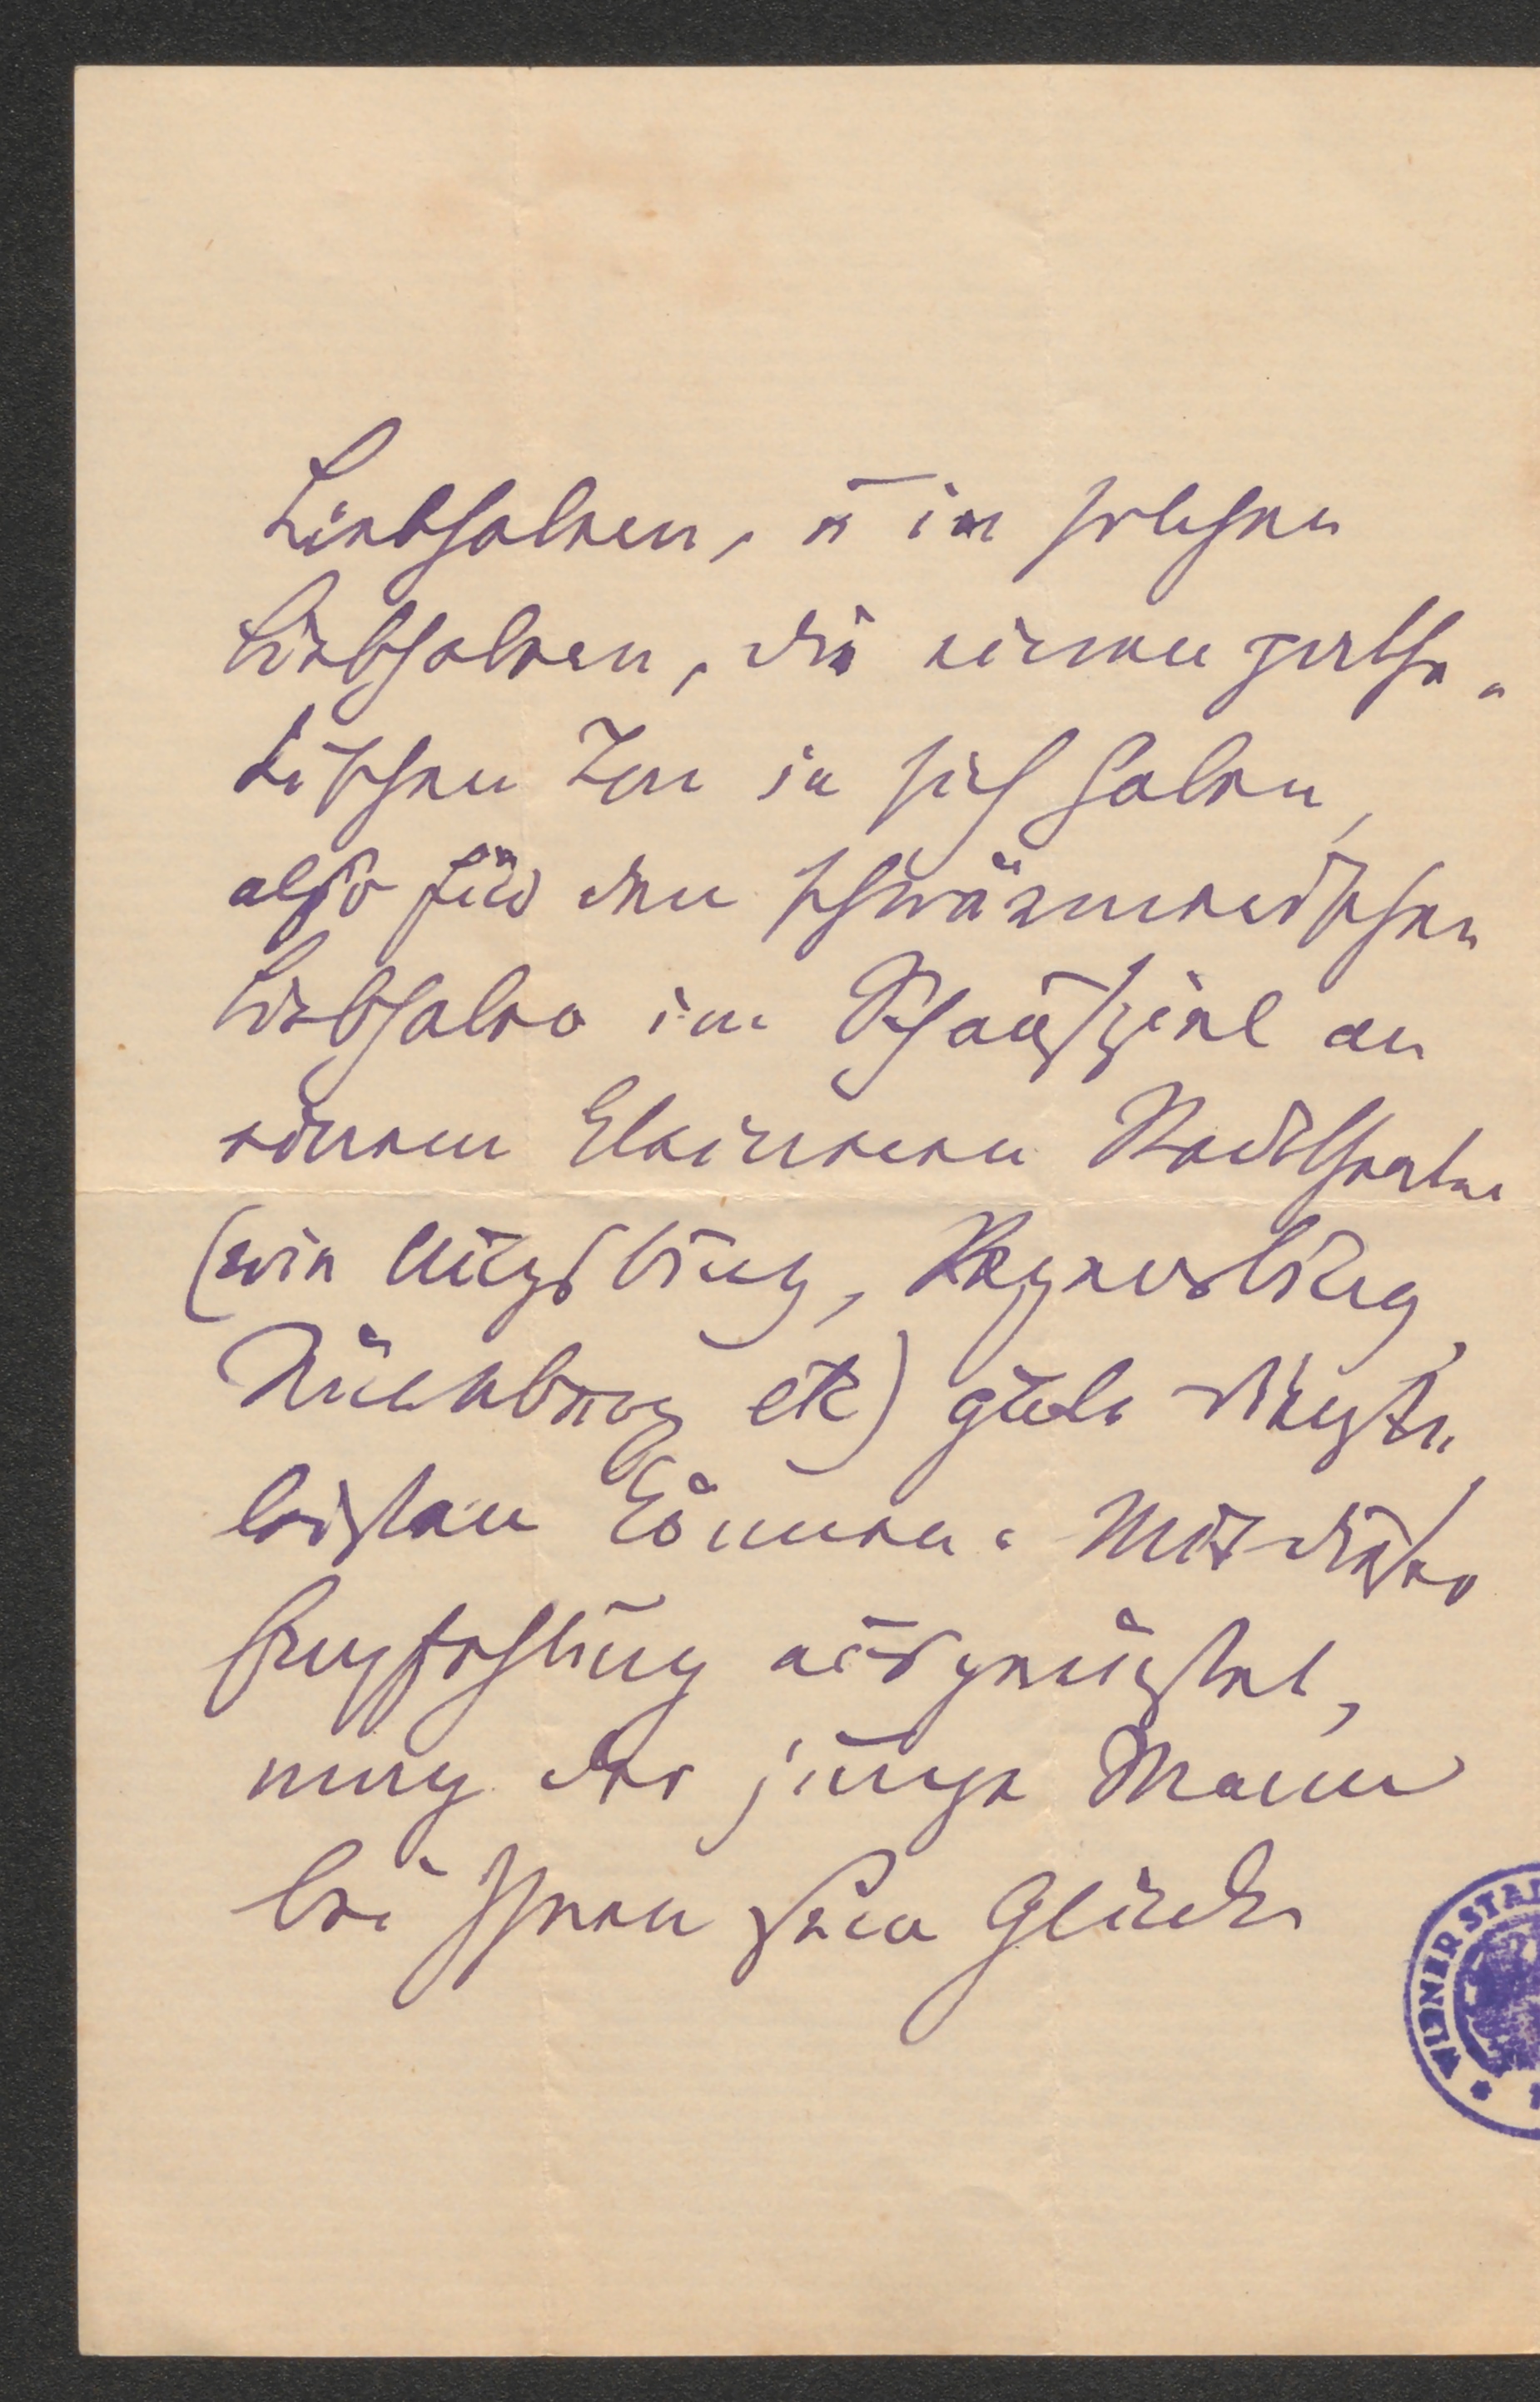 Liebhabern, u in solchen
Liebhabern, die einen pathe-
tischen Ton in sich haben,
also für den schwärmerischen
Liebhaber im Schauspiel an
einem kleineren Stadttheater
(wie Augsburg, Regensburg,
Nürnberg etc) gute Dienste
leisten können. Mit dieser
Empfehlung ausgerüstet,
mag der junge Mann
bei Ihnen sein Glück
WIENER STA